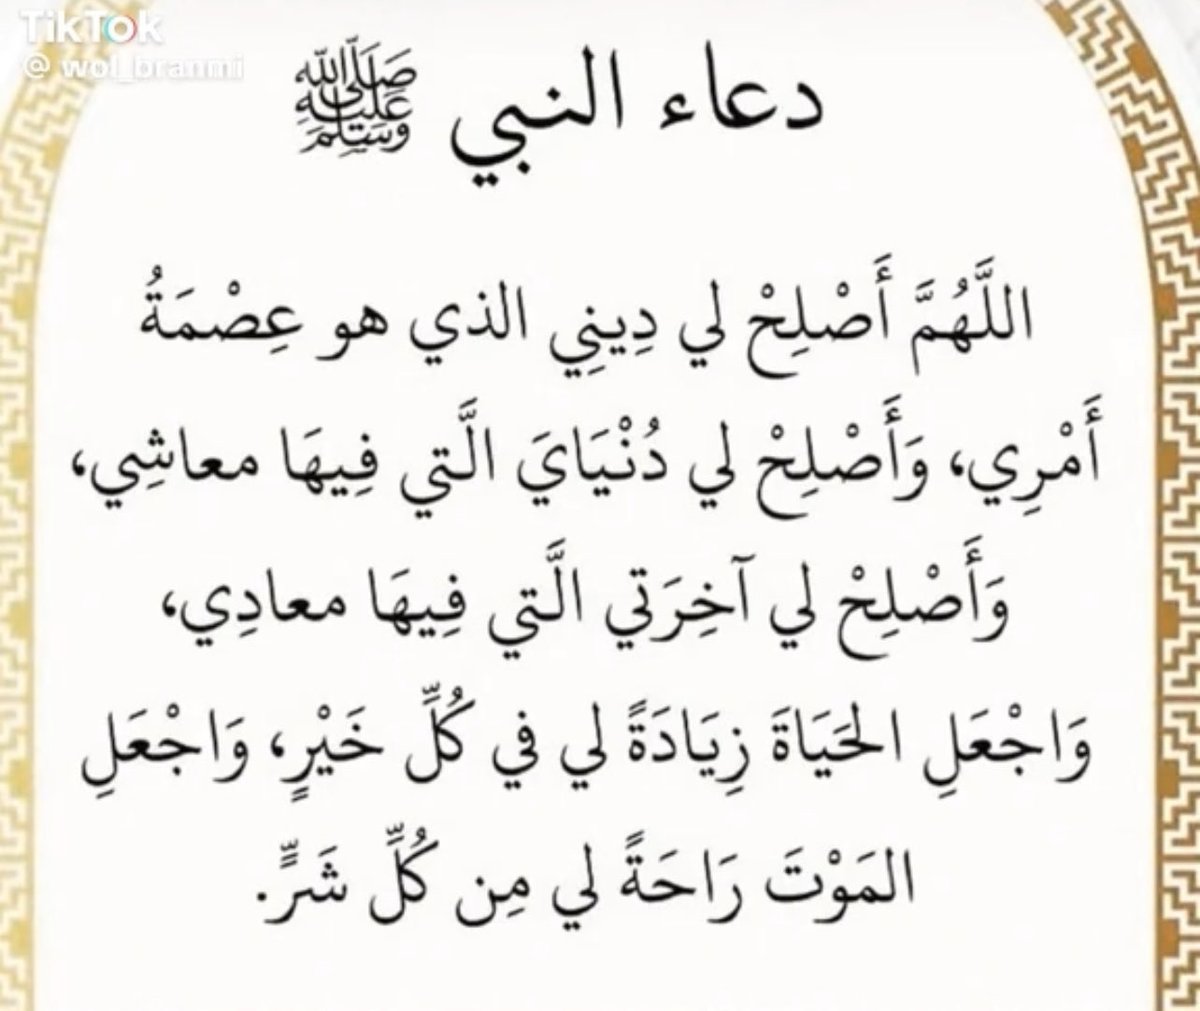 TikTok
@ wol_branmi
دعاء النبي ﷺ
اللَّهُمَّ أَصْلِحْ لي دِينِي الذي هو عِصْمَةُ
أَمْرِي، وَأَصْلِحْ لي دُنْيَايَ الَّتي فِيهَا معاشِي،
وَأَصْلِحْ لي آخِرَتي الَّتي فِيهَا معادِي،
وَاجْعَلِ الحَيَاةَ زِيَادَةً لي في كُلِّ خَيْرٍ، وَاجْعَلِ
المَوْتَ رَاحَةً لي مِن كُلِّ شَرٍّ.